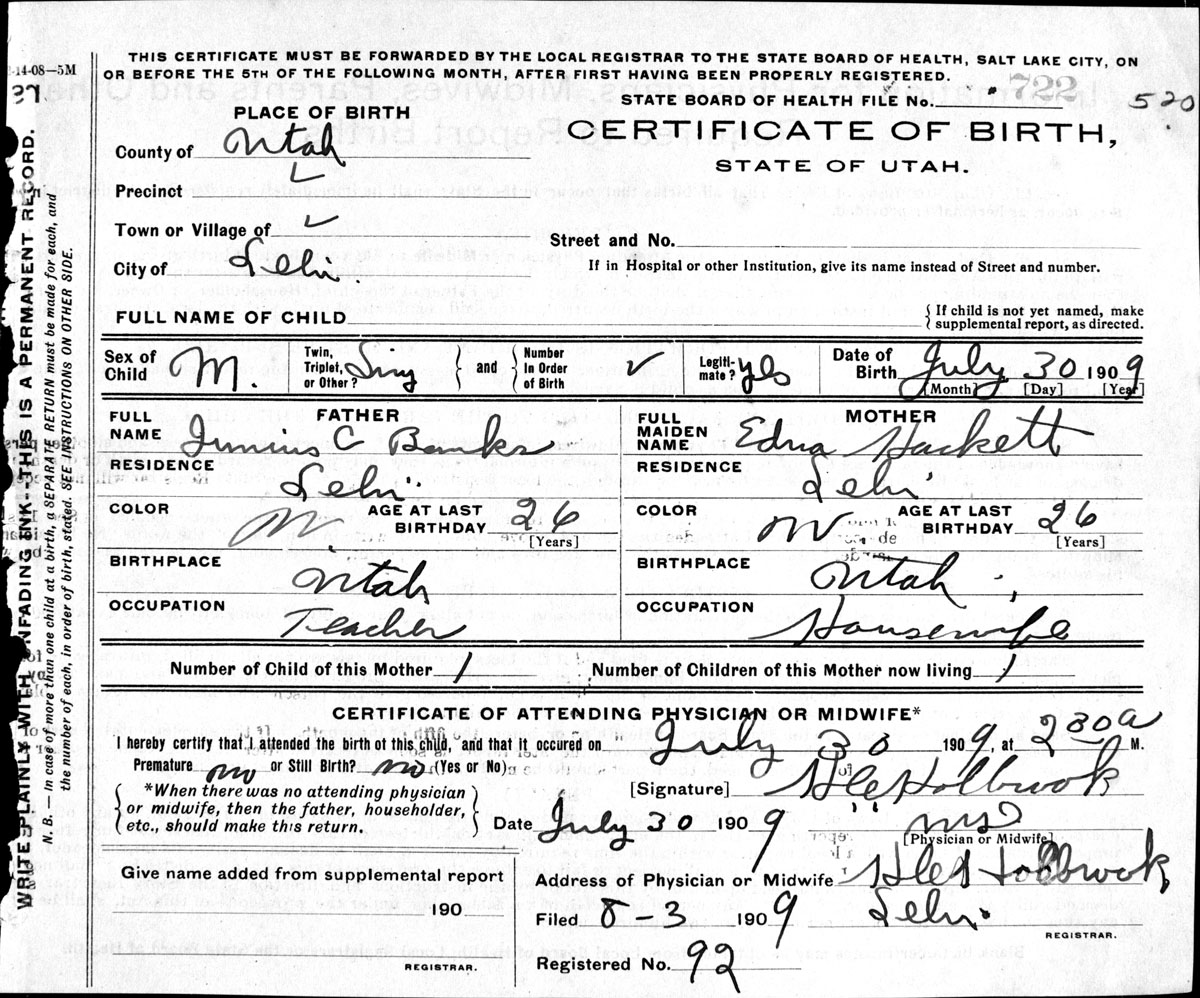 2-14-08—5M
THIS CERTIFICATE MUST BE FORWARDED BY THE LOCAL REGISTRAR TO THE STATE BOARD OF HEALTH, SALT LAKE CITY, ON
OR BEFORE THE 5TH OF THE FOLLOWING MONTH, AFTER FIRST HAVING BEEN PROPERLY REGISTERED.
STATE BOARD OF HEALTH FILE No. 722 520
PLACE OF BIRTH
CERTIFICATE OF BIRTH,
STATE OF UTAH.
County of Utah
Precinct
Town or Village of
Street and No.
City of Lehi
If in Hospital or other Institution, give its name instead of Street and number.
FULL NAME OF CHILD
{ If child is not yet named, make
supplemental report, as directed.
Sex of Child M. Twin, Triplet, or Other? Sing } and { Number In Order of Birth Legiti-mate? yes Date of Birth July 30 1909
[Month] [Day] [Year]
FATHER
FULL NAME Junius C Banks
RESIDENCE Lehi
COLOR W. AGE AT LAST BIRTHDAY 26
[Years]
BIRTHPLACE Utah
OCCUPATION Teacher
MOTHER
FULL MAIDEN NAME Edna Hackett
RESIDENCE Lehi
COLOR W AGE AT LAST BIRTHDAY 26
[Years]
BIRTHPLACE Utah
OCCUPATION Housewife
Number of Child of this Mother 1 Number of Children of this Mother now living 1
CERTIFICATE OF ATTENDING PHYSICIAN OR MIDWIFE*
I hereby certify that I attended the birth of this child, and that it occured on July 30 1909, at 230a M.
Premature no or Still Birth? no (Yes or No)
[Signature] Holbrook
*When there was no attending physician
or midwife, then the father, householder,
etc., should make this return.
Date July 30 1909
[Physician or Midwife]
Give name added from supplemental report
190
REGISTRAR.
Address of Physician or Midwife Holbrook
Filed 8-3 1909 Lehi.
REGISTRAR.
Registered No. 92
WRITE PLAINLY WITH UNFADING INK—THIS IS A PERMANENT RECORD.
N. B.—In case of more than one child at a birth, a SEPARATE RETURN must be made for each, and
the number of each, in order of birth, stated. SEE INSTRUCTIONS ON OTHER SIDE.